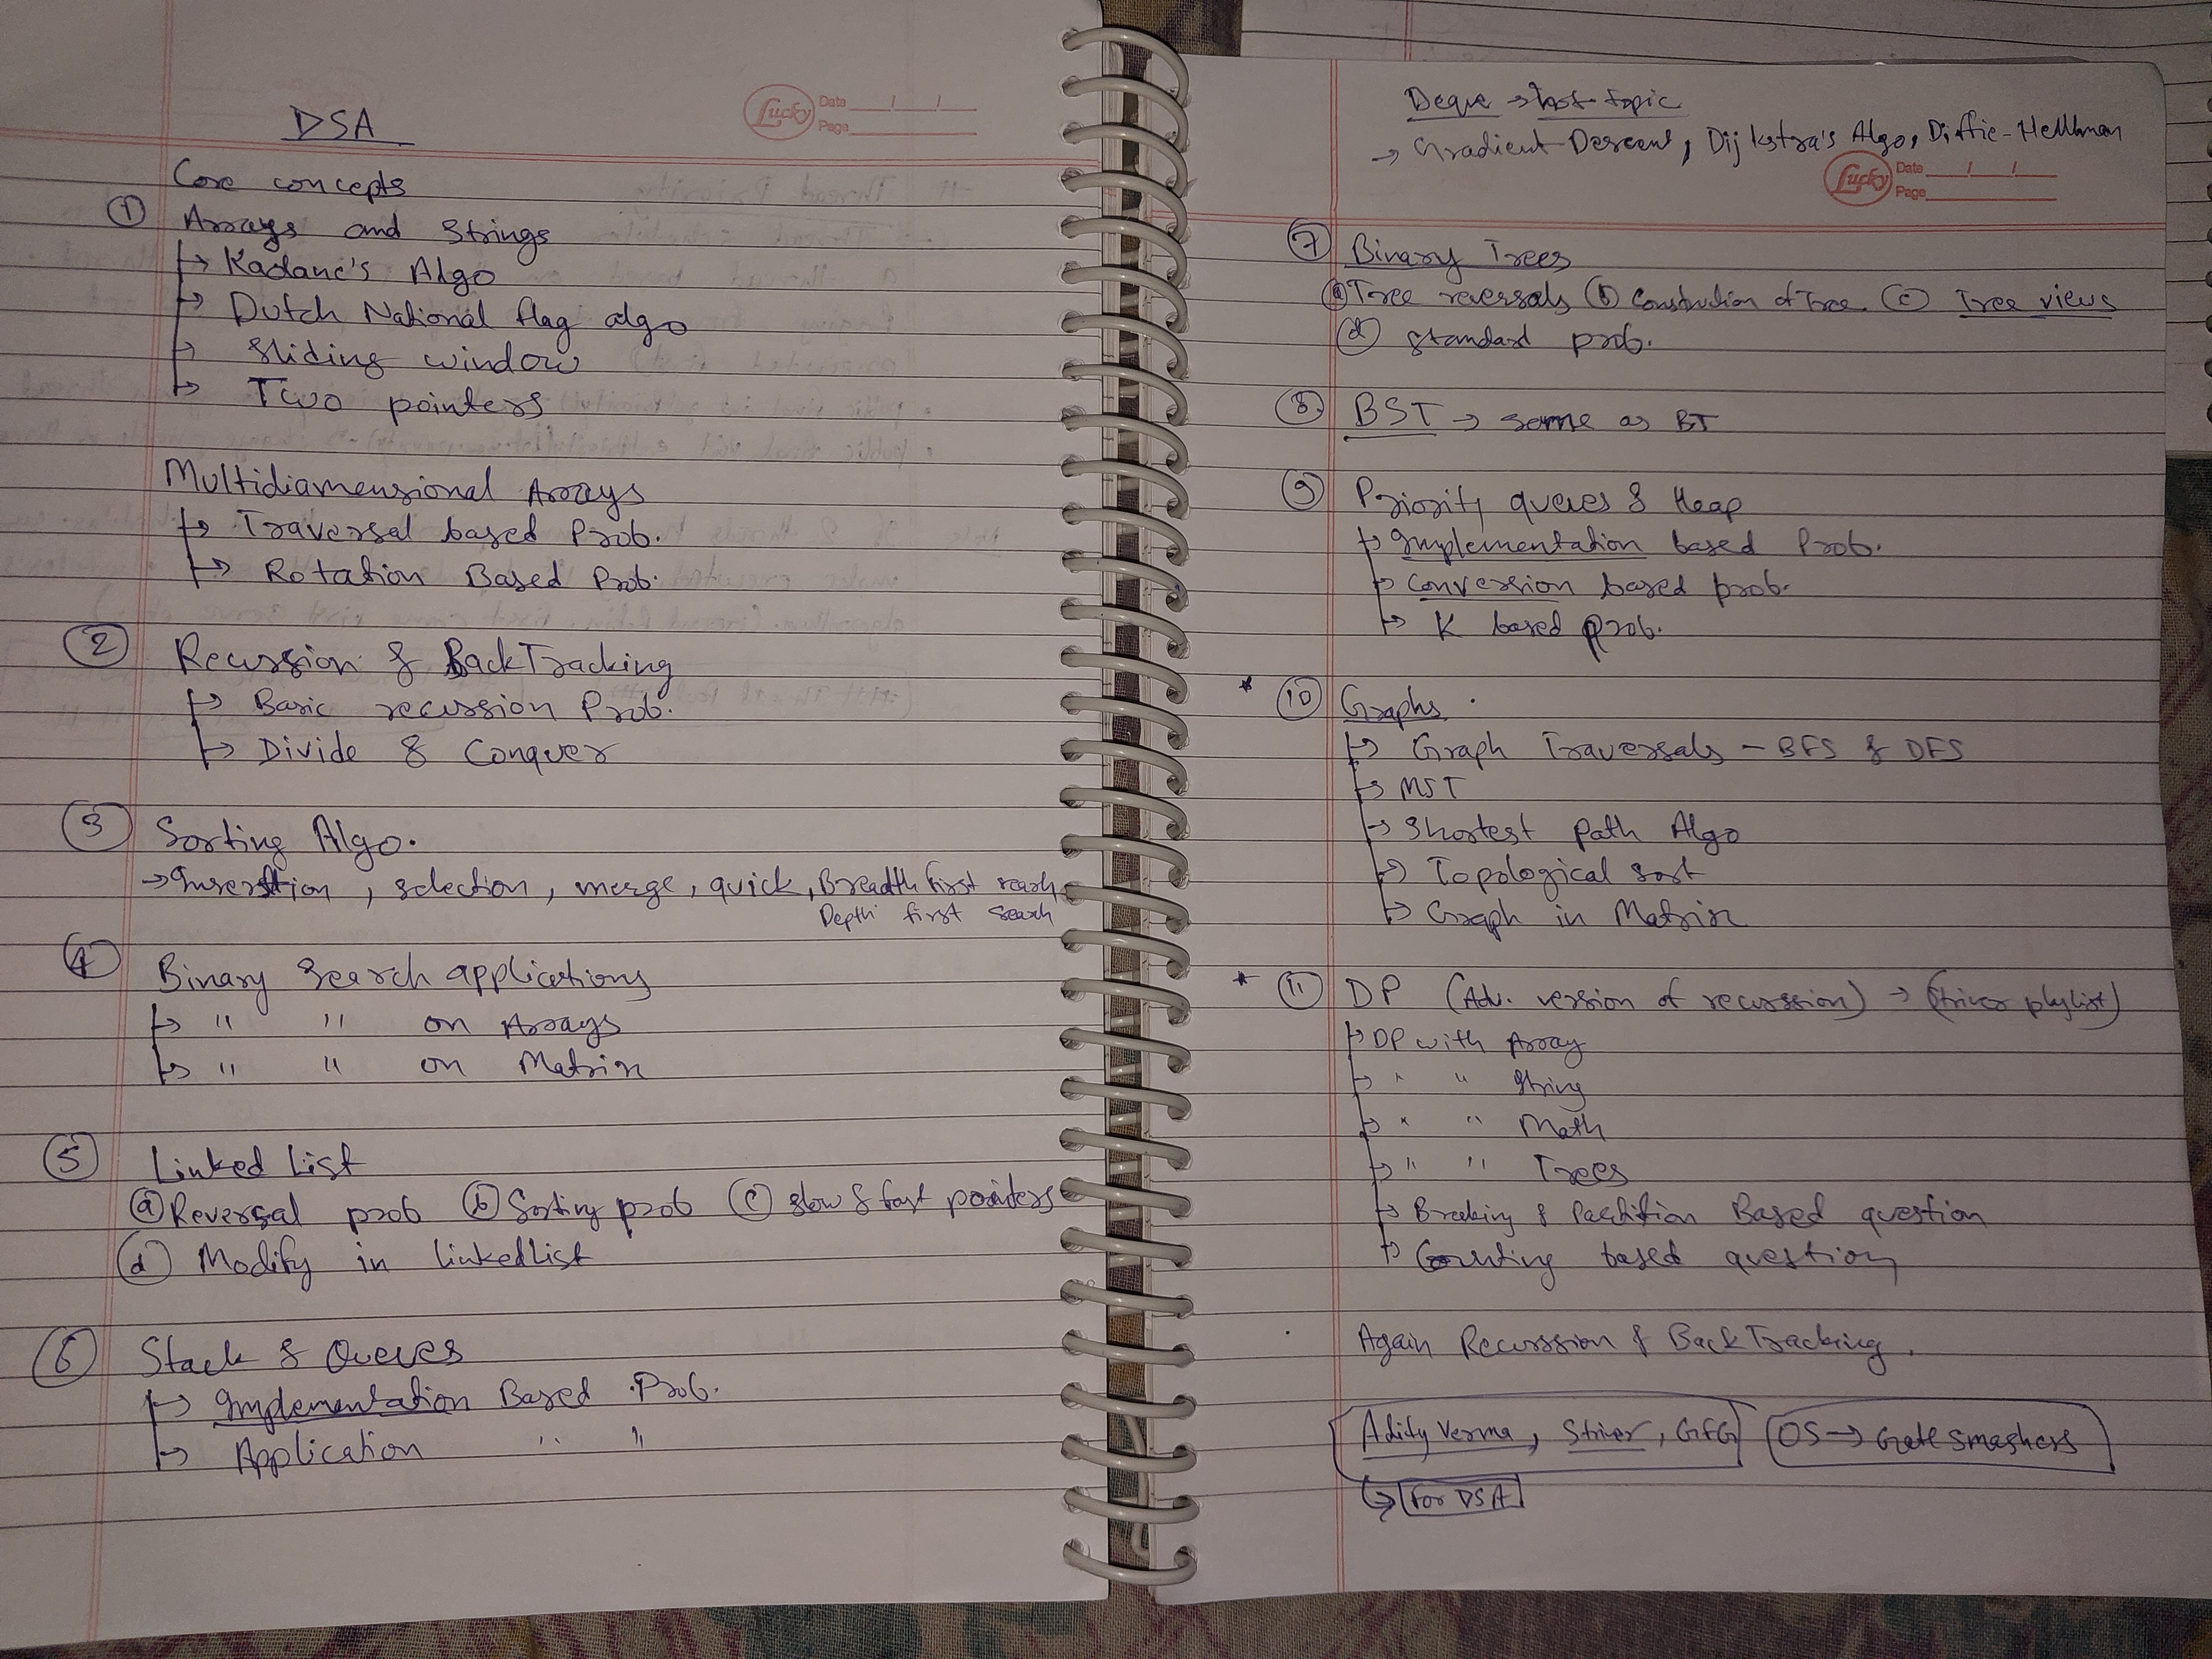 DSA
Lucky Date / / Page
Core concepts
① Arrays and Strings
→ Kadane's Algo
→ Dutch National flag algo
→ Sliding window
→ Two pointers
Multidiamensional Arrays
→ Traversal based Prob.
→ Rotation Based Prob.
② Recussion & BackTracking
→ Basic recussion Prob.
→ Divide & Conquer
③ Sorting Algo.
→ Insertion, selection, merge, quick, Breadth first search,
Depth first search
④ Binary Search applications
→ " " on Arrays
→ " " on Matrix
⑤ Linked List
ⓐ Reversal prob ⓑ Sorting prob ⓒ slow & fast pointers
ⓓ Modify in linkedlist
⑥ Stack & Queues
→ Implementation Based Prob.
→ Application " "
Deque → last topic
→ Gradient Descent, Dijkstra's Algo, Diffie-Hellman
Lucky Date / / Page
⑦ Binary Trees
ⓐ Tree reversals ⓑ Construction of Tree ⓒ Tree views
ⓓ standard prob.
⑧ BST → same as BT
⑨ Priority queues & Heap
→ Implementation based Prob.
→ Conversion based prob.
→ K based prob.
* ⑩ Graphs
→ Graph Traversals - BFS & DFS
→ MST
→ Shortest path Algo
→ Topological sort
→ Graph in Matrix
* ⑪ DP (Adv. version of recurssion) → (Striver playlist)
→ DP with Array
→ " " String
→ " " Math
→ " " Trees
→ Breaking & Partition Based question
→ Counting based question
Again Recurssion & BackTracking.
Adity Verma, Striver, GFG OS → Gate Smashers
→ For DSA